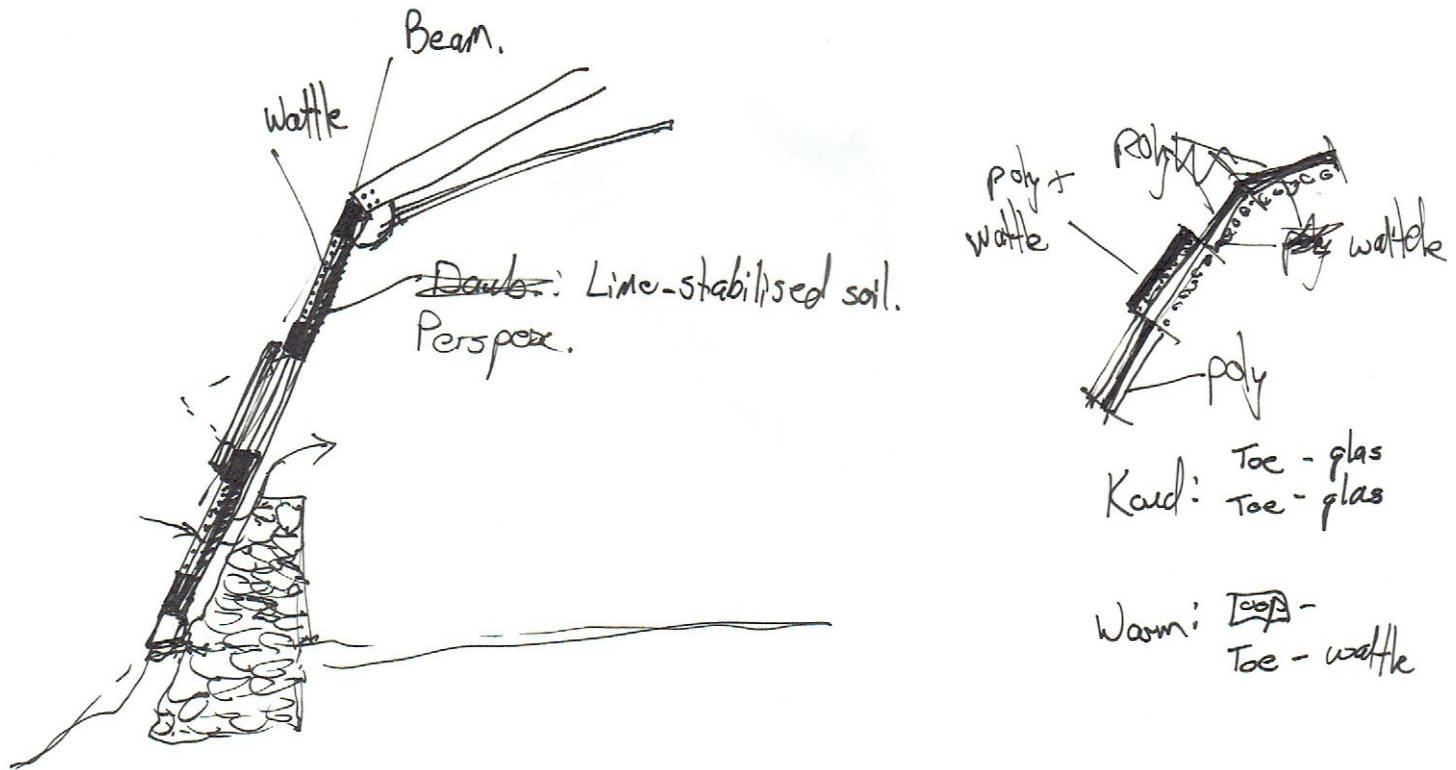 Beam.
Wattle
Daub: Lime-stabilised soil.
Perspex.
poly +
wattle
poly
wattle
poly
Koud: Toe - glas
Toe - glas
Warm: oop -
Toe - wattle